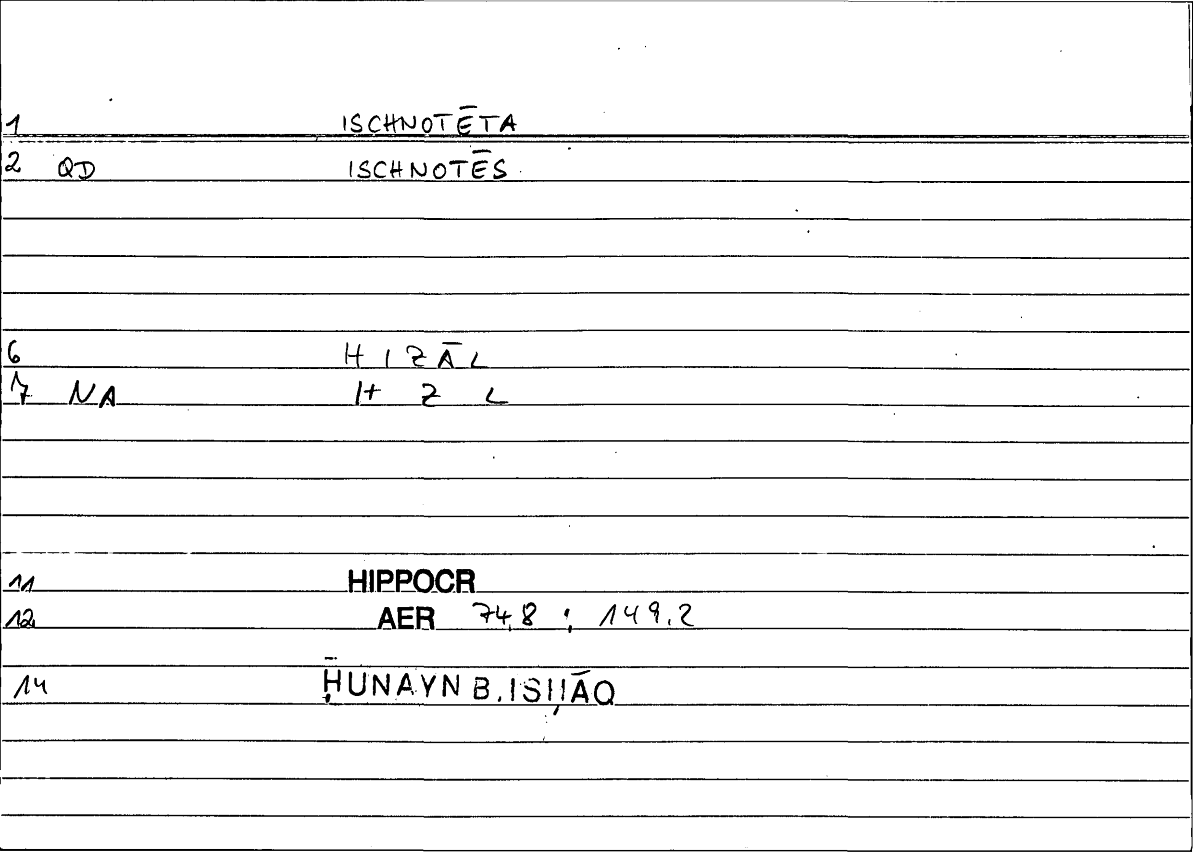 1 ISCHNOTĒTA
2 QD ISCHNOTĒS
6 HIZĀL
7 NA H Z L
11 HIPPOCR
12 AER 74,8 ; 149,2
14 ḤUNAYN B. ISḤĀQ